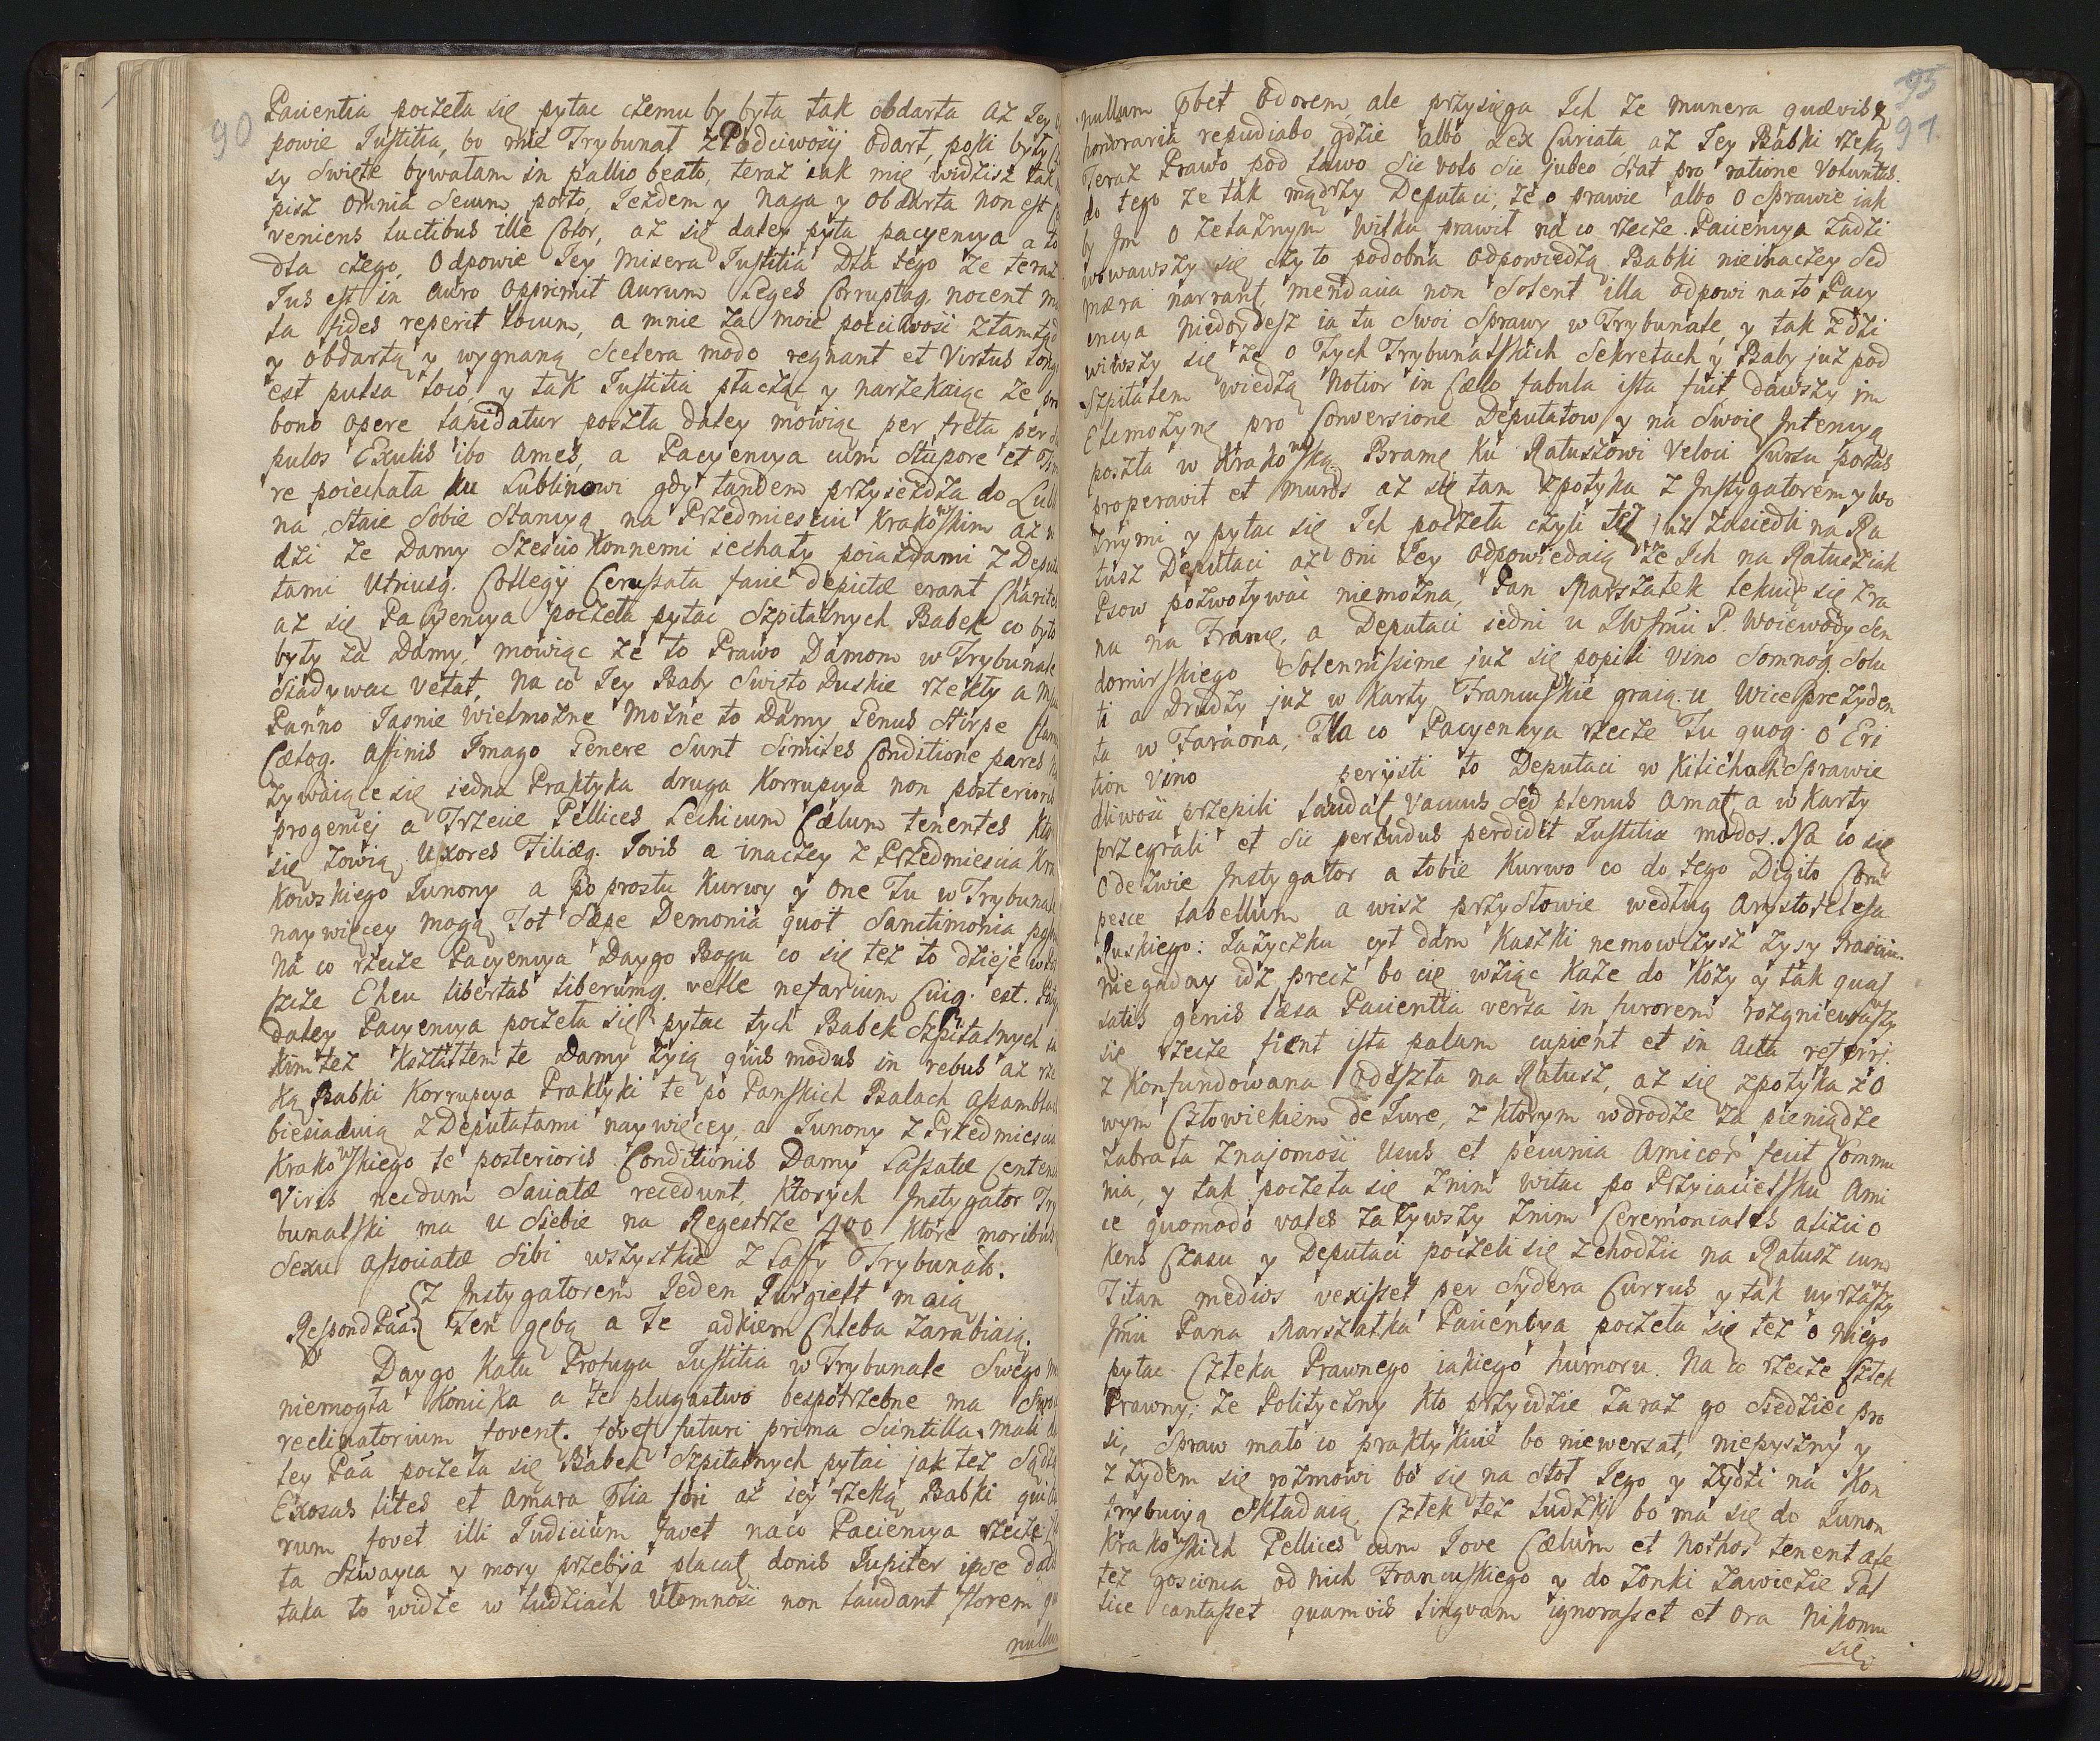 90
Pacientia poczęła się pytac czemu by była tak obdarta Az Jey
powie Justitia, bo mie Trybunał z Podciwosij odarł, poki były
sy Swięte bywałam in pallio beato, teraz iak mię widzisz tak
pisz omnia Secum porto, Jezdem y naga y obdarta non est
veniens luctibus ille Color, az się daley pyta pacyencya a to
dla czego, Odpowie Jey misera Justitia Dla tego ze teraz
Jus est in auro opprimit Aurum Leges Corruptaq. nocent
ta fides reperit locum, a mnie za moię pociwosc ztamtąd
y obdartą y wygnaną Scelera modo regnant et Virtus long
est pulsa loco, y tak Justitia płacząc y narzekaiąc ze pro
bono opere lapidatur poszła daley mowiąc per freta per
pulos Exulis ibo Ames, a Pacyencya cum Stupore et
re poiechała ku Lublinowi gdy tandem przyiezdza do Lubl
na, Staie Sobie Stancyą na Przedmiesciu Krakowskim az
dzi ze Damy Szescio Konnemi iechały poiazdami z Depu
tami Utriusq. Collegij Cerussata facie depictæ erant Charites
az się Pacyencya poczęła pytac Szpitalnych Babek co było
były za Damy, mowiąc ze to Prawo Damom w Trybunale
Siadywac vetat, na co Jey Baby Swięto Duskie rzekły a
Panno Jasnie Wielmozne Mozne to Damy Genus Stirpe
Cæloq. affinis Imago Genere Sunt Similes Conditione pares
zywaiące się iedna Praktyka druga Korrupcya non posterioris
progeniej a Trzecie Pellices Lechicum Cælum tenentes Kto
się zowią Uxores Filiæq. Jovis a inaczey z Przedmiescia Kra
kowskiego Junony a po prostu Kurwy y one Tu w Trybunale
naywięcey mogą Tot Sæpe Demonia quot Sanctimonia
na co rzecze Pacyencya Daygo Bogu co się tez to dzieje
Eheu libertas liberumq. velle nefarium Cuiq. est.
daley Pacyencya poczęła się pytac tych Babek Szpitalnych
kim tez Kształtem te Damy zyią quis modus in rebus az rze
ką Babki Korrupcya Praktyki te po Panskich Balach Assambla
biesiaduią z Deputatami naywięcey, a Junony z Przedmiescia
Krakowskiego te posterioris Conditionis Damy Lassatæ Centenis
Viris necdum Saciatæ recedunt, Ktorych Instygator Try
bunalski ma u Siebie na Regestrze 400 Które moribus
Sexu associatæ Sibi wszystkie z Lassy Trybunals.
z Instygatorem Jeden Jurgielt maią
Respond Paã. Ten gębą a Te zadkiem Chleba zarabiaią.
Daygo Katu Profuga Justitia w Trybunale Swego
niemogła Konicka a te plugastwo bespotrzebne ma Swoie
reclinatorium fovent. fovet futuri prima Scintilla mali
ley Paã poczęła się Babek Szpitalnych pytac jak tez Sądzą
Exosas lites et amara ptia fori az iey rzeką Babki qui
rum fovet illi Judicium favet na co Pacięncya rzecze
ta Szwayca y mory przebija placat donis Jupiter ipse
taka to widzę w ludziach Ułomnosc non laudant florem
nullum

95
91.
nullum pbet odorem, ale przysięga Ich ze munera quævis &
honoraria repudiabo gdzie albo Lex Curiata az Jey Babki rzeką
Teraz Prawo pod ławo Sic volo Sic jubeo Stat pro ratione Voluntas.
do tego ze tak mądrzy Deputaci, ze o prawie albo o Sprawie iak
by Im o zelaznym Wilku prawił na co rzecze Pacięncya zadzi
wowawszy się czy to podobna odpowiedzą Babki nieinaczey Sed
mæra narrant, mendacia non Solent illa odpowi na to Pacy
encya niedoydesz ia tu Swoi Sprawy w Trybunale, y tak zdzi
wiwszy się ze o Tych Trybunalskich Sekretach y Baby juz pod
Szpitalem wiedzą Notior in Cælo fabula ista fuit dawszy im
Elemozynę pro Conversione Deputatow y na Swoię Intencyą
poszła w Krakowską Bramę Ku Ratuszowi Veloci Cursu portas
properavit et muros az się tam zpotyka z Instygatorem y Wo
znymi y pytac się Ich poczęła czyli tez juz zasiedli na Ra
tusz Deputaci az oni Jey odpowiedaią ze Ich na Ratusz iak
Psow pozwoływac niemozna, Pan Marszałek lekuie się z ra
nu na Francę, a Deputaci iedni u JWImci P. Woiewody Sen
domirskiego Solennissime juz się popili Vino Somnoq. Solu
ti a Drudzy juz w Karty Francuskie graią u Wiceprezyden
ta w Faraona, Na co Pacyencya rzecze Tu quoq. o Eri
tion Vino perijsti to Deputaci w Kilichach Sprawie
dliwosc przepili laudat Vacuus Sed plenus Amat, a w Karty
przegrali et Sic perludus perdidit Justitia modos. Na co się
odezwie Instygator a tobie Kurwo co do tego Digito Com
pesce labellum a wisz przysłowie według Arystotelesa
Ruskiego: Jazyczku cyt dam Kaszki nemowczysz zysy traściu.
niegaday idz precz bo cię wziąc Kazę do Kozy y tak quas
satis genis læsa Pacientia versa in furorem rozgniewawszy
się rzecze fient ista palam cupient et in Acta referri.
z Konfundowana odeszła na Ratusz, az się zpotyka z o
wym Człowiekiem de Jure, z ktorym wdrodze za pieniądze
zabrała znajomosc Usus et pecunia Amicos fecit Commu
nia, y tak poczęła się znim witac po Przyiacielsku Ami
ce quomodo vales zazywszy znim Ceremoniales alizci o
kens Czasu y Deputaci poczeli się zchodzic na Ratusz cum
Titan medios vexisset per Sydera Currus y tak uyrzawszy
Jmci Pana Marszałka Paciencya poczeła się tez o niego
pytac Człeka Prawnego iakiego humoru. Na co rzecze Człek
Prawny: ze Polityczny kto przyidzie zaraz go Siedziec pro
si, Spraw mało co praktykuie bo niewersat, niepyszny y
z Zydem się rozmowi bo się na Stoł Jego y Zydzi na Kon
trybucyą Składaią, Człek tez ludzki bo ma się do Junon
Krakowskich Pellices cum Jove Cælum et Nothos tenent ase
tez goscinca od nich Francuskiego y do zonki zawiezie Pal
lice cantasset quamvis linguam ignorasset et ora nikomu
się